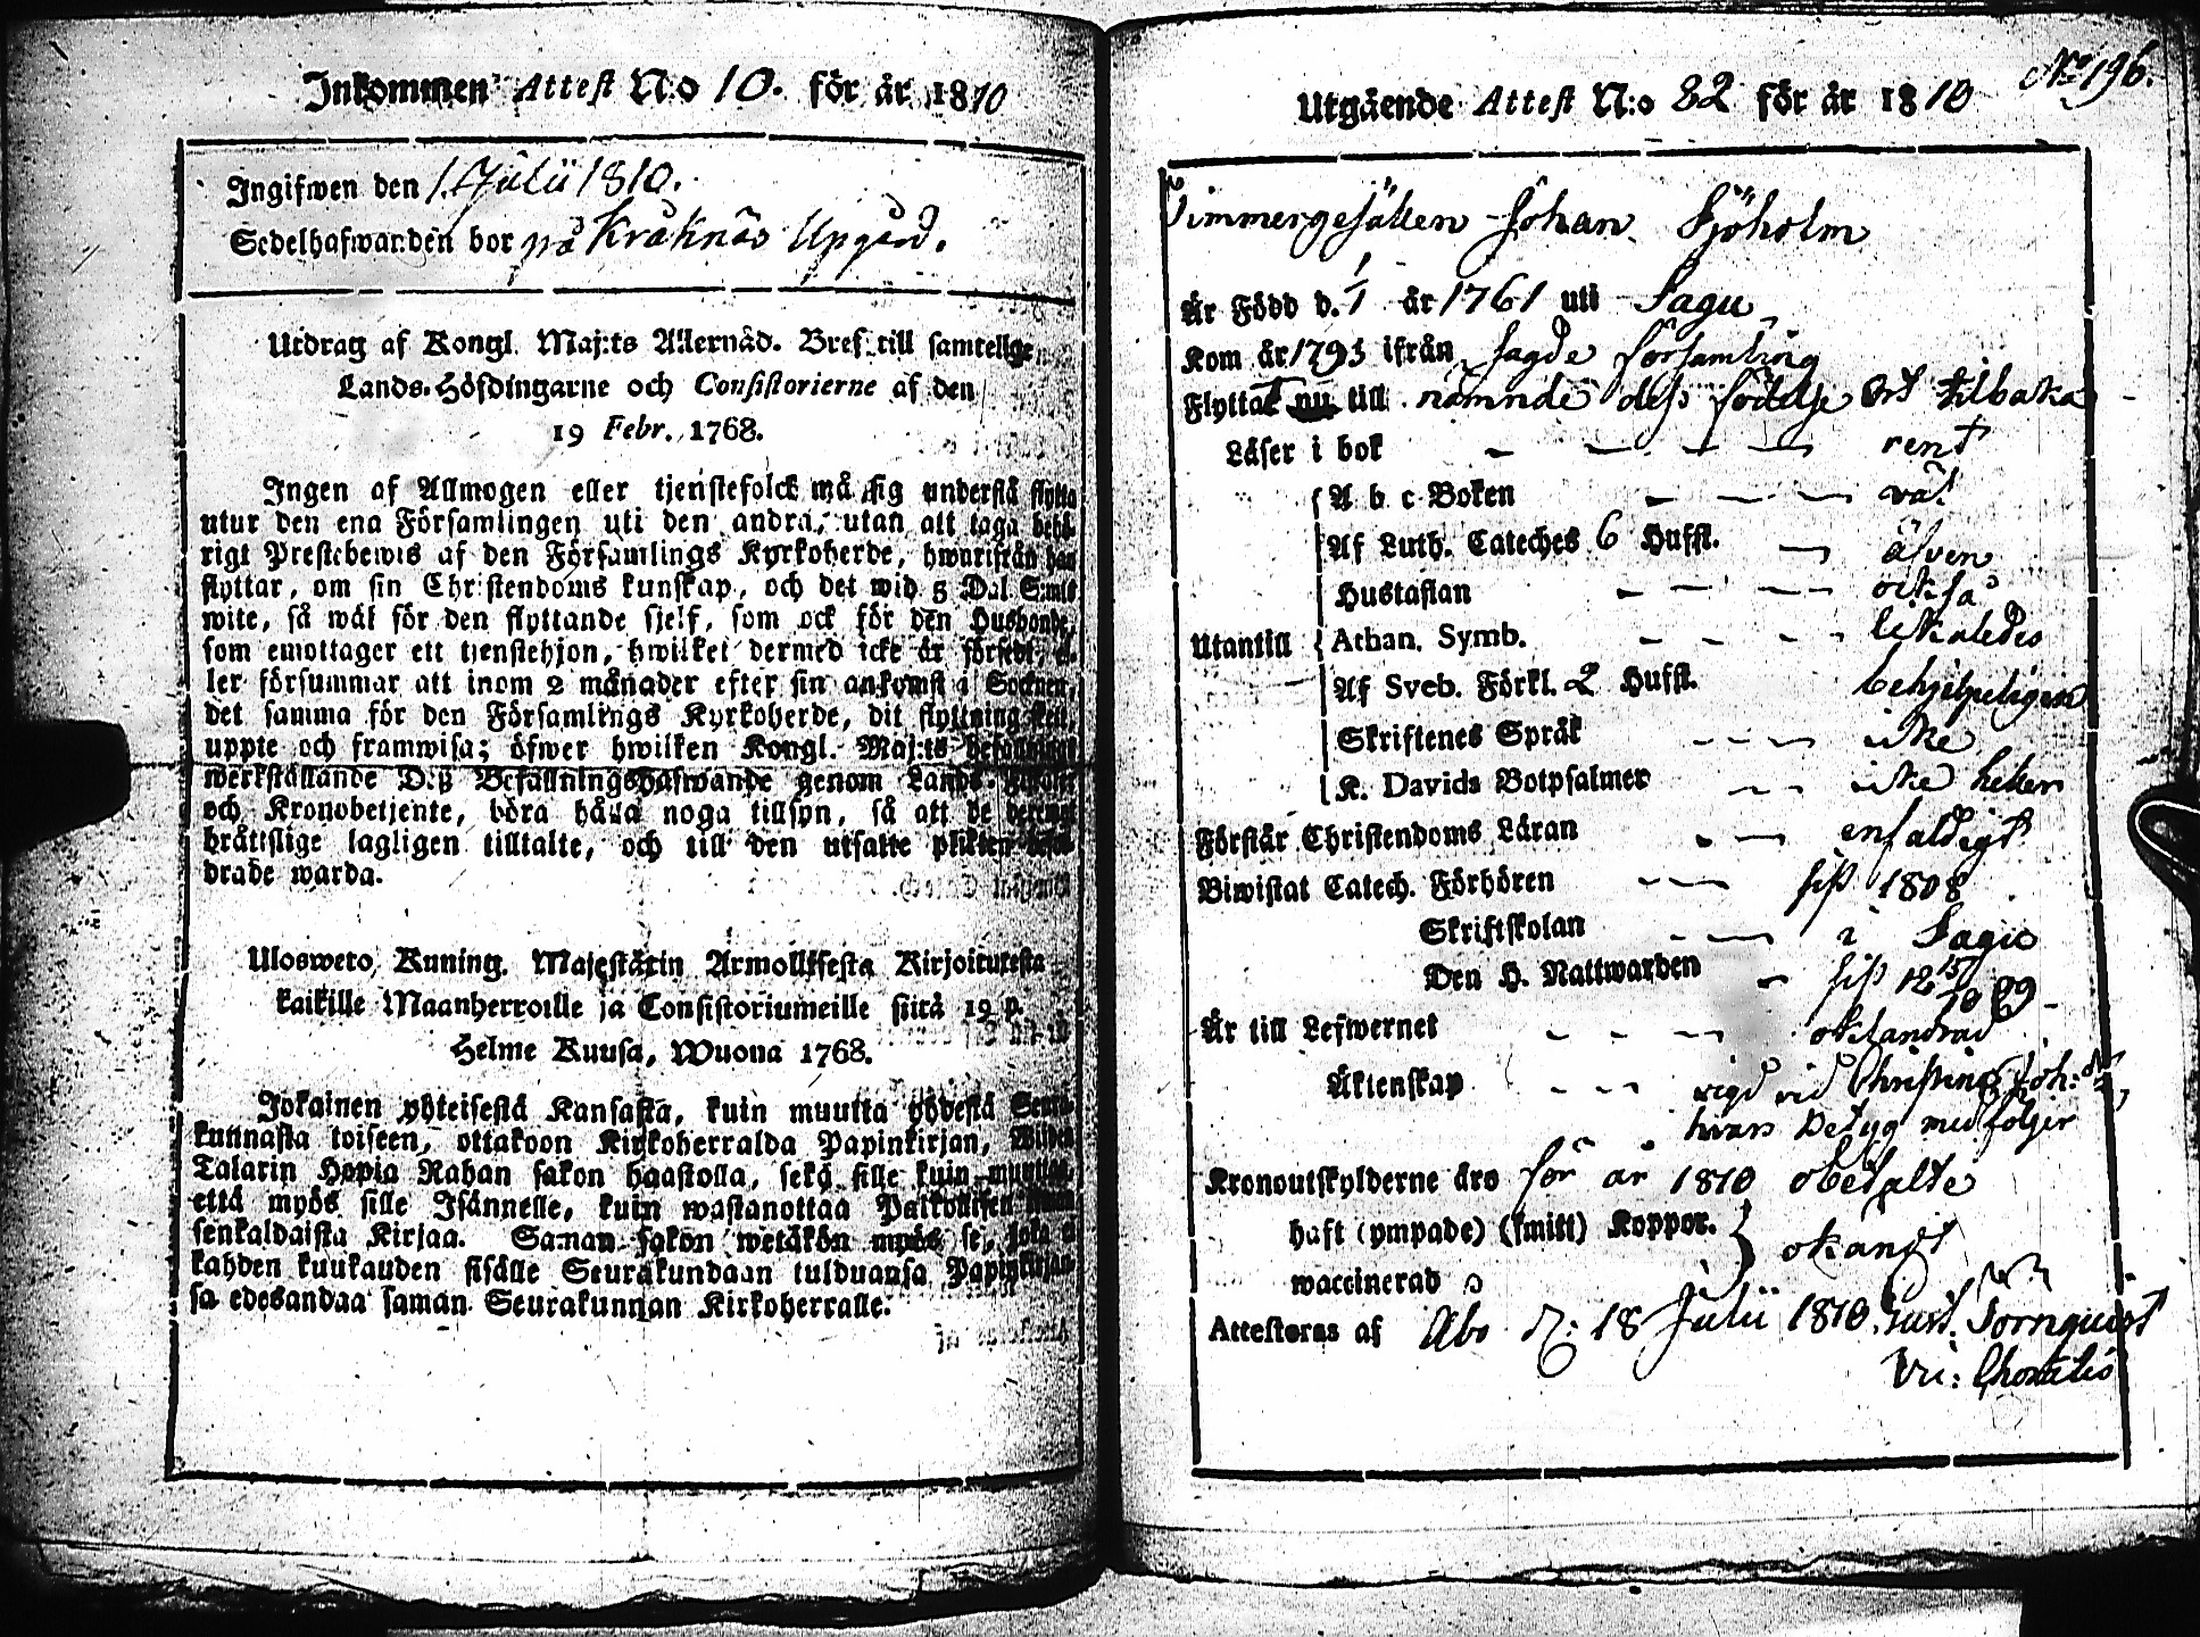 Inkommen Attest N:o 10. för år 1810
Ingifwen den 1. Julii 1810.
Sedelhafwanden bor på Kråknäs Upgård.
Utdrag af Kongl. Maj:ts Allernåd. Bref till samtellge
Lands-Höfdingarne och Consistorierne af den
19 Febr. 1768.
Ingen af Allmogen eller tjenstefolck må sig understå flytta
utur den ena Församlingen uti den andra, utan att taga behö-
rigt Prestebewis af den Församlings Kyrkoherde, hwarifrån han
flyttar, om sin Christendoms kunskap, och det wid 5 Dal. S:mts
wite, så wäl för den flyttande sjelf, som ock för den Husbonde,
som emottager ett tjenstehjon, hwilket dermed icke är försedt, el-
ler försummar att inom 2 månader efter sin ankomst i Socknen,
det samma för den Församlings Kyrkoherde, dit flyttning skett,
uppte och framwisa; öfwer hwilken Kongl. Maj:ts befallnings
werkställande Deß Befallningshafwande genom Lands-
och Kronobetjente, böra hålla noga tillsyn, så att de deremot
bråttslige lagligen tilltalte, och till den utsatte plikten befor-
drade warda.
Ulosweto, Kuning. Majestätin Armollisesta Kirjoituresta
kaikille Maanherroille ja Consistoriumeille siitä 19 p.
Helme Kuusa, Wuona 1768.
Jokainen yhteisestä Kansasta, kuin muutta yhdestä Seura-
kunnasta toiseen, ottakoon Kirkoherralda Papinkirjan, Wiiden
Talarin Hopia Rahan sakon haastolla, sekä sille kuin muuttaa
että myös sille Isännelle, kuin wastanottaa Palkollisen ilman
senkaldaista Kirjaa. Saman sakon wetäkön myös se, joka ei
kahden kuukauden sisälle Seurakundaan tulduansa Papinkirjaan-
sa edesandaa saman Seurakunnan Kirkoherralle.
No 196.
Utgående Attest N:o 82 för år 1810
Timmergesällen Johan Sjöholm
Är Född d. 1/1 år 1761 uti Sagu
Kom år 1793 ifrån sagde församling
Flyttat nu till nämnde dess födelse Ort tilbaka
Läser i bok - - - - rent
A b c Boken - - - väl
Af Luth. Cateches 6 Hufst. - äfven
Hustaflan - - - - också
Utantill Athan. Symb. - - - - likaledes
Af Sveb. Förkl. 2 Hufst. behjelpeligen
Skriftenes Språk - - - icke
K. Davids Botpsalmer - - icke heller
Förstår Christendoms Läran - - enfaldigt
Biwistat Catech. Förhören - - sist 1808
Skriftskolan - - i Sagu
Den H. Nattwarden - sist 15/10 09
Är till Lefwernet - - - oklandrad
Äktenskap - - vigd vid Christina Joh:dr,
hvars Betyg medföljer
Kronoutskylderne äro för år 1810 obetalte
haft (ympade) (smitt) Koppor. } okändt
waccinerad
Attesteras af Åbo d: 18 Julii 1810. Gust. Törnquist